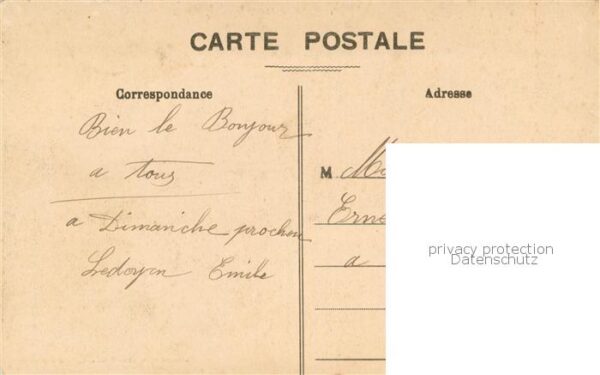 CARTE POSTALE
Correspondance
Adresse
Bien le Bonjour
a tous
a Dimanche prochen
Ledoyen Emile
M
a
privacy protection
Datenschutz